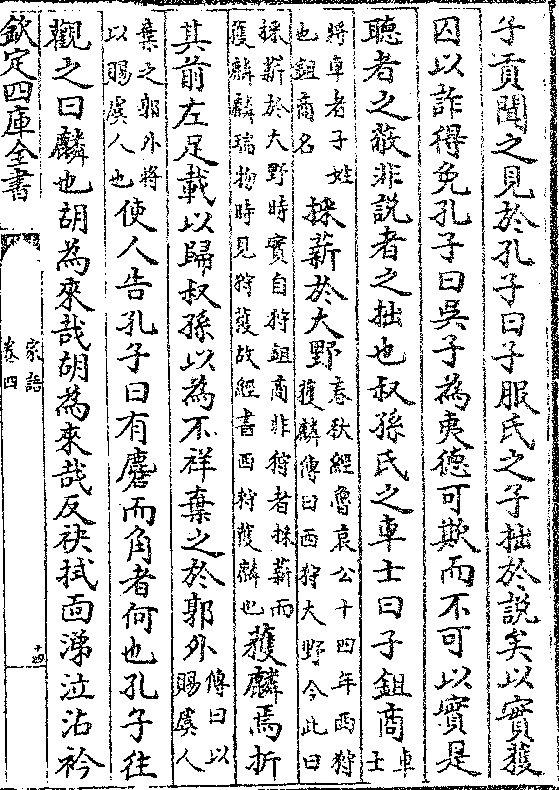 子貢聞之見於孔子曰子服氏之子拙於說矣以實獲
囚以詐得免孔子曰吳子為夷德可欺而不可以實是
聽者之蔽非說者之拙也叔孫氏之車士曰子鉏商車士
將車者子姓也鉏商名採薪於大野春秋經魯哀公十四年西狩獲麟傳曰西狩大野今此曰
採薪於大野時實自狩鉏商非狩者採薪而獲麟麟瑞物時見狩獲故經書西狩獲麟也獲麟焉折
其前左足載以歸叔孫以為不祥棄之於郭外傳曰以賜虞人
棄之郭外將以賜虞人也使人告孔子曰有麏而角者何也孔子往
觀之曰麟也胡為來哉胡為來哉反袂拭面涕泣沾衿
欽定四庫全書
家語
卷四
十四